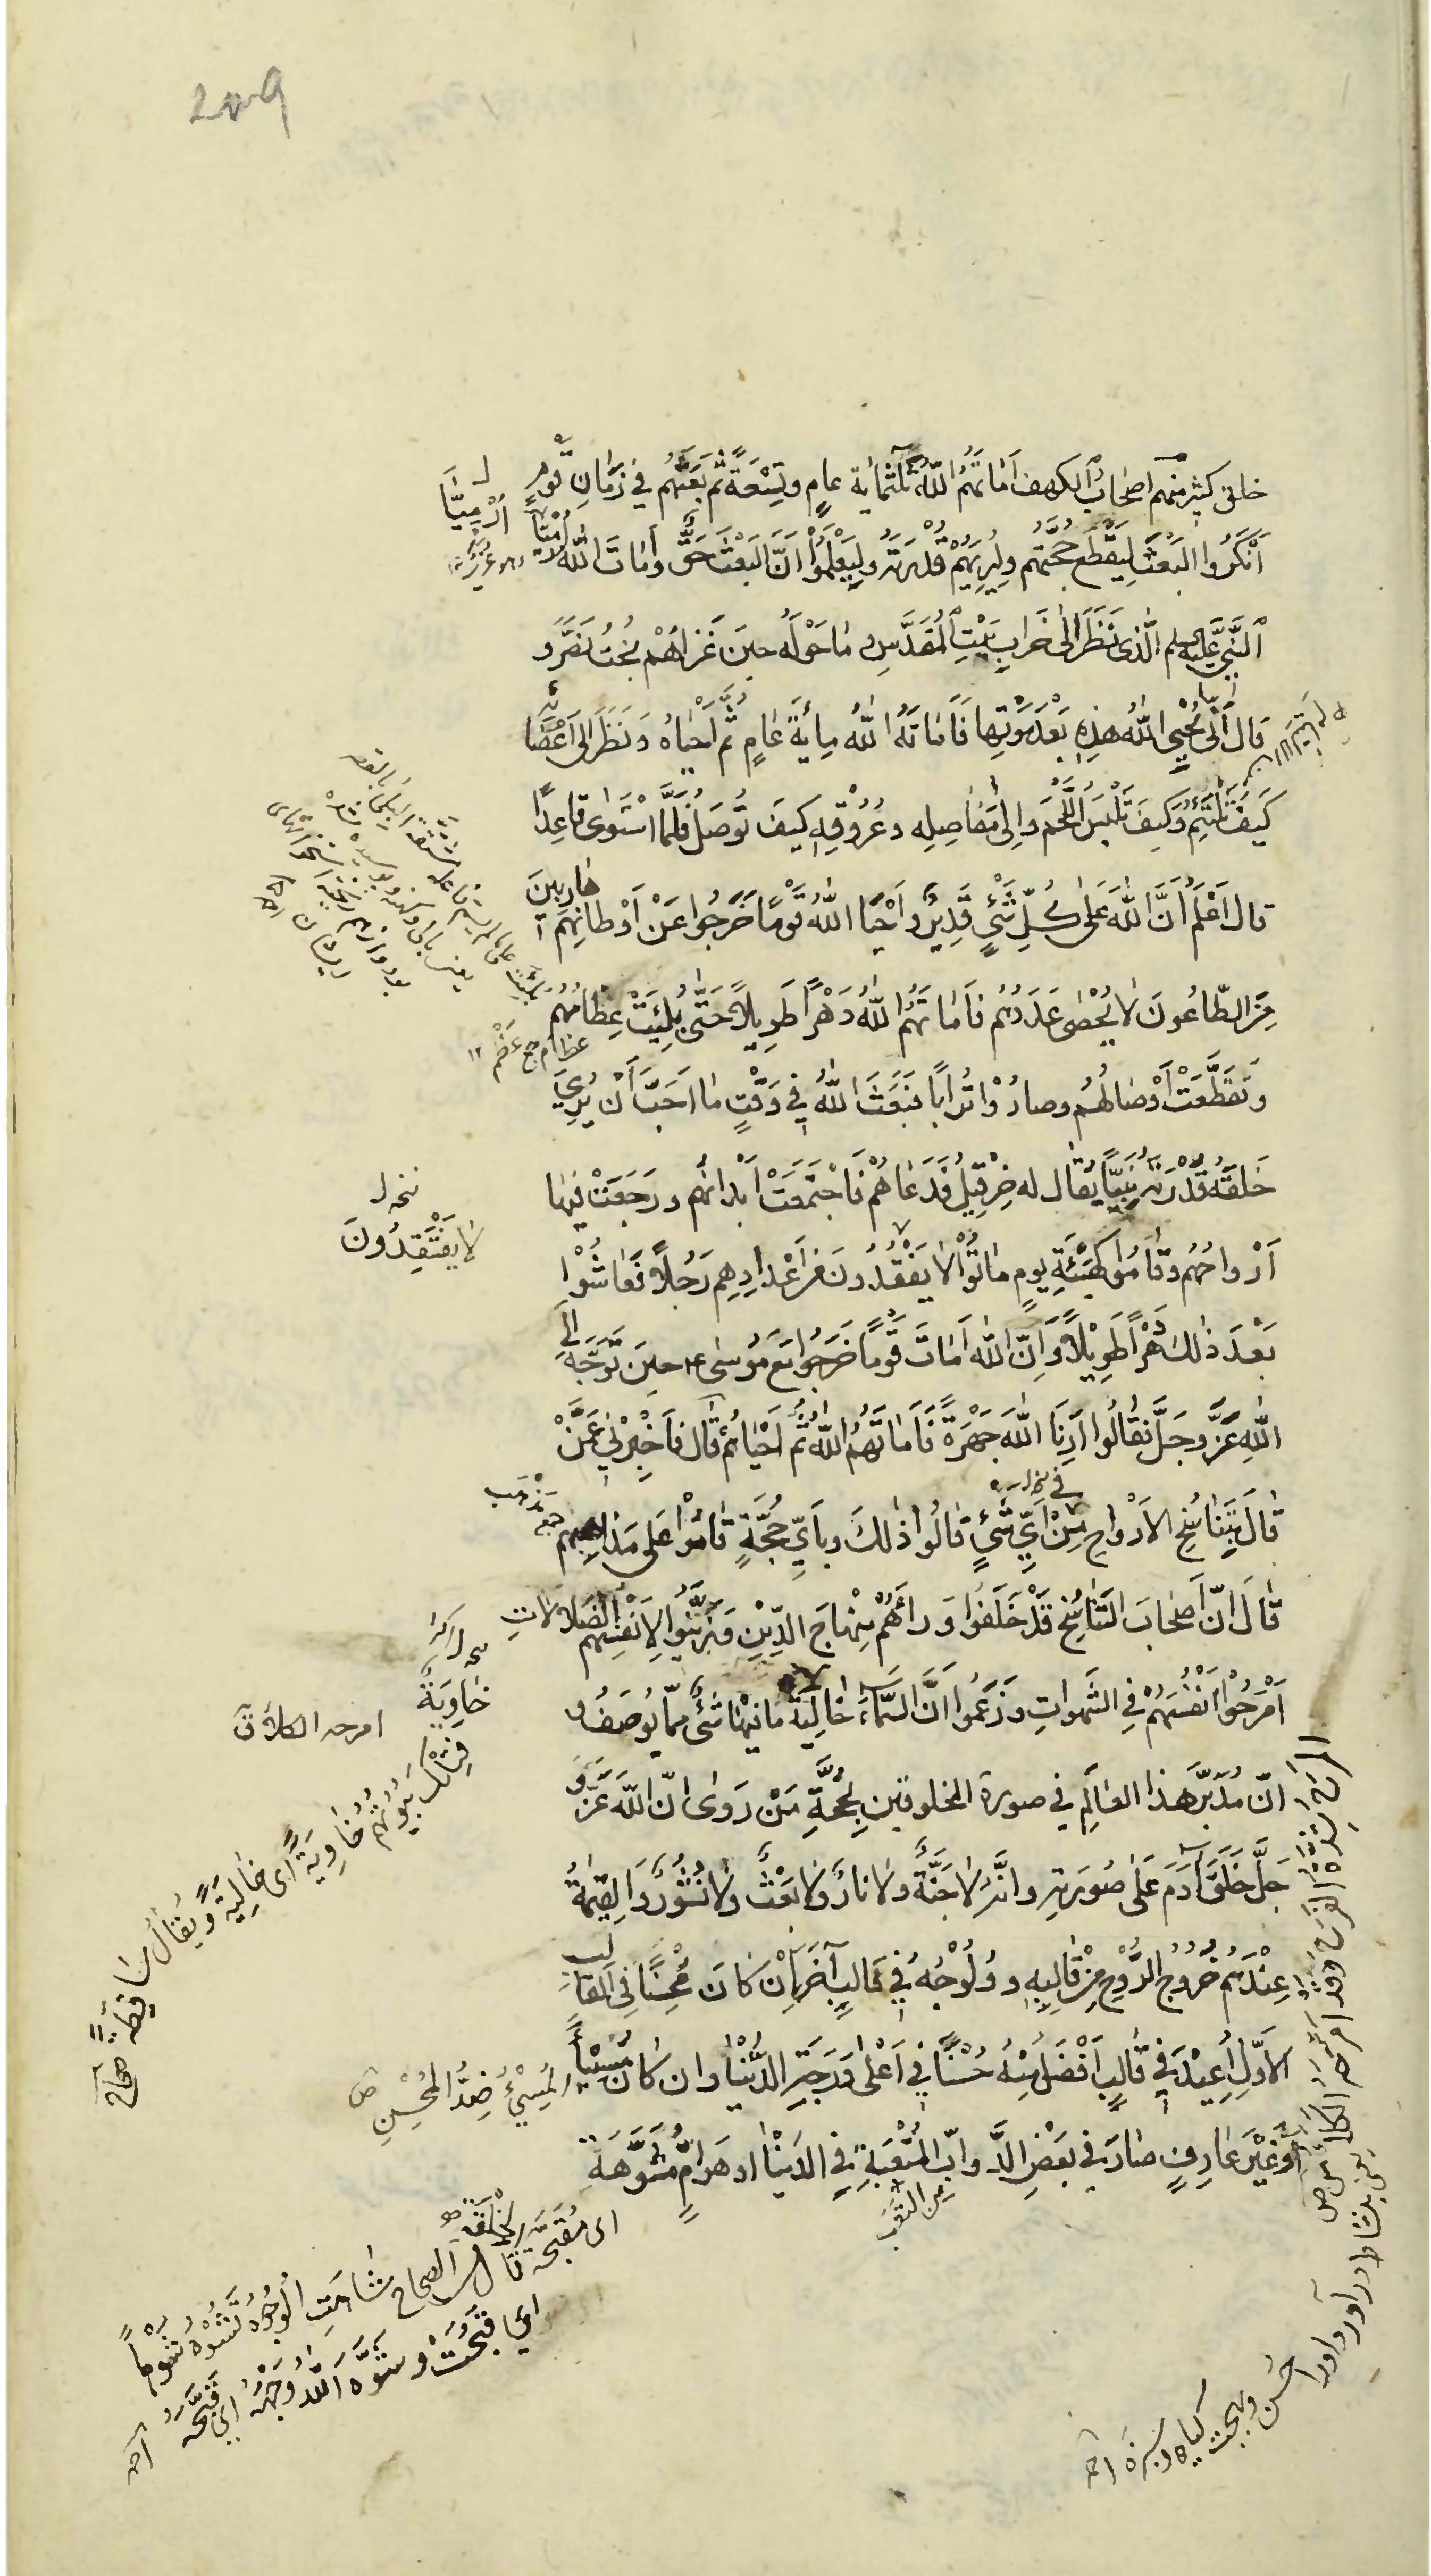 خلق كثير منهم اصحاب الكهف اَمَاتَهُمُ اللّٰهُ ثلثمائة عامٍ وتِسْعَةً ثُمَّ بَعَثَهُم في زَمَانِ قَومٍ
اَنْكَرُوا البَعْثَ لِيَقْطَعَ حُجَّتَهُم ولِيُرِيَهُمْ قُدْرَتَهُ ولِيَعْلَمُوا اَنَّ البَعْثَ حَقٌّ وَاَمَاتَ اللّٰهُ اِرْمِيَا
اَرْمِيَّا
النَّبِيَّ عليه السلم الَّذى نَظَرَ اِلى خَرابِ بَيْتِ المُقَدَّسِ وما حَوْلَهُ حِينَ غَزَاهُمْ بُخْتُ نَصَّرَ و
قال اَنّى يُحْيِي اللّٰهُ هذِهِ بَعْدَ مَوْتِها فَاَمَاتَهُ اللّٰهُ مِائَةَ عَامٍ ثُمَّ اَحْيَاهُ وَنَظَرَ اِلى اَعْضَائِه
كَيْفَ تَلْتَئِمُ وَكَيفَ تَلْبَسُ اللَّحْمَ واِلى مَفَاصِلِه وعُرُوقِهِ كيفَ تُوصَلُ فَلَمَّا اسْتَوٰى قاعِدًا
قال اَعْلَمُ اَنَّ اللّٰهَ عَلى كُلِّ شَئٍ قَدِيرٌ وَاَحْيَا اللّٰهُ قَوْمًا خَرَجُوا عَنْ اَوْطَانِهِم هَارِبِينَ
مِنَ الطَّاعُونَ لا يُحْصٰى عَدَدُهُم فَاَمَاتَهُمُ اللّٰهُ دَهْرًا طَوِيلًا حَتّى بُلِيَتْ عِظَامُهُم
عظام جمع عَظْم ١٢
وَتَقَطَّعَتْ اَوْصَالُهُم وصارُوْا تُرابًا فَبَعَثَ اللّٰهُ في وَقْتٍ مَا اَحَبَّ اَنْ يُرِيَ
خَلْقَهُ قُدْرَتَهُ نَبِيًّا يُقَال له خِرْقِيلُ فَدَعَاهُمْ فَاجْتَمَعَتْ اَبْدانُهُم ورَجَعَتْ فيها
اَرْواحُهُم وقَامُوا كَهَيْئَةِ يومٍ مَاتُوْا لا يَفْقِدُونَ مِن اَعْدادِهِم رَجُلًا فَعَاشُوْا
لا يَفْتَقِدُونَ
بَعْدَ ذٰلكَ دَهْرًا طَوِيْلًا وَاِنَّ اللّٰهَ اَمَاتَ قَوْمًا خَرَجُوا مَع مُوسٰى ع حِينَ تَوَجَّهَ اِلَى
اللّٰهِ عَزَّ وجَلَّ فقالُوا اَرِنَا اللّٰهَ جَهْرَةً فَاَمَاتَهُمُ اللّٰهُ ثُمَّ اَحْيَاهُم قَال فَاَخْبِرْنِي عَمَّنْ
قالَ بِتَنَاسُخِ الاَرْواحِ مِنْ اَيِّ شَيْءٍ قَالُوا ذٰلكَ وبِاَيِّ حُجَّةٍ قَامُوْا عَلى مَذاهِبِهِم
جمع مَذْهَب
قَالَ اِنّ اَصْحَابَ التَّنَاسُخِ قَدْ خَلَّفُوا وَرَاءَهُمْ مِنْهَاجَ الدِّيْنِ وَزَيَّنُوا لِاَنْفُسِهِم الضَلالَاتِ
اَمْرَجُوا اَنْفُسَهُمْ فِي الشَّهَواتِ وَزَعَمُوا اَنَّ السَّمَاءَ خَالِيَةٌ مَا فِيْهَا شَيْءٌ مِمّا يُوصَفُ و
خَاوِيَةٌ
اَنَّ مُدَبِّرَ هَذَا العَالَمِ في صورة المخلوقين بِحُجَّةِ مَنْ رَوٰى انّ اللّٰهَ عَزَّ وَ
جَلَّ خَلَقَ آدَمَ عَلٰى صُورَتِهِ وانَّهُ لاجَنَّةَ ولانارَ ولابَعْثَ ولانُشُورَ وَالقِيمَةُ
عِنْدَهُم خُرُوْجُ الرُّوْحِ مِنْ قَالِبِهِ ووُلُوْجُهُ في قَالِبٍ آخَرَ اِنْ كَانَ مُحْسِنًا فِي القَالَبِ
الاَوَّلِ اُعِيْدَ في قَالِبٍ اَفْضَلَ مِنْهُ حُسْنًا في اَعْلٰى دَرَجَةِ الدُّنْيَا وان كَانَ مُسِيْئًا
المُسِيْئُ ضِدُّ المُحْسِنِ
اَوْ غَيْرَ عَارِفٍ صَارَ في بَعْضِ الدَّوابّ المُتْعَبَةِ فِي الدُّنْيَا اَوْ هَوَامٍّ مُشَوَّهَةِ
مِنَ التَّعَب
فتلك بُيُوتُهُم خَاوِيَةً اَى خَالِيَةً ويُقالُ سَاقِطَةً صحاح
اى مُقَبَّحَة الخِلْقَة
قال في الصحاح شاهَتِ الوُجُوهُ تَشُوْهُ شَوْهًا
اى قَبُحَتْ وشَوَّهَ اللّٰهُ وَجْهَهُ اى قَبَّحَهُ